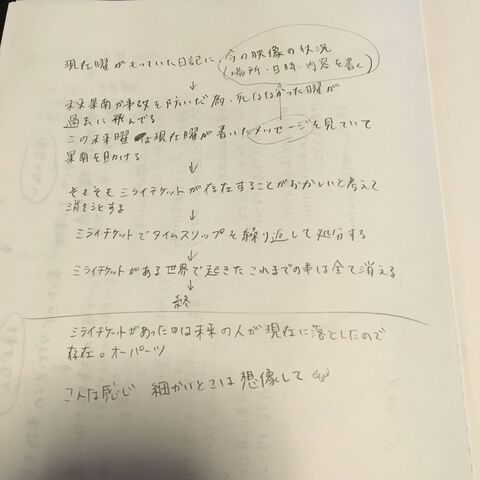 現在曜がもっていた日記に 今の映像の状況
(場所・日時・内容を書く)
↓
未来果南が事故を防いだ為・死ななかった曜が
過去に飛んでる
この未来曜は現在曜が書いたメッセージを見ていて
果南を助ける
↓
そもそもミライチケットが存在することがおかしいと考えて
消そうとする
↓
ミライチケットでタイムスリップを繰り返して処分する
↓
ミライチケットがある世界で起きたこれまでの事は全て消える
↓
終
ミライチケットがあったのは未来の人が現在に落としたので
存在。オーパーツ
こんな感じ 細かいとこは想像して